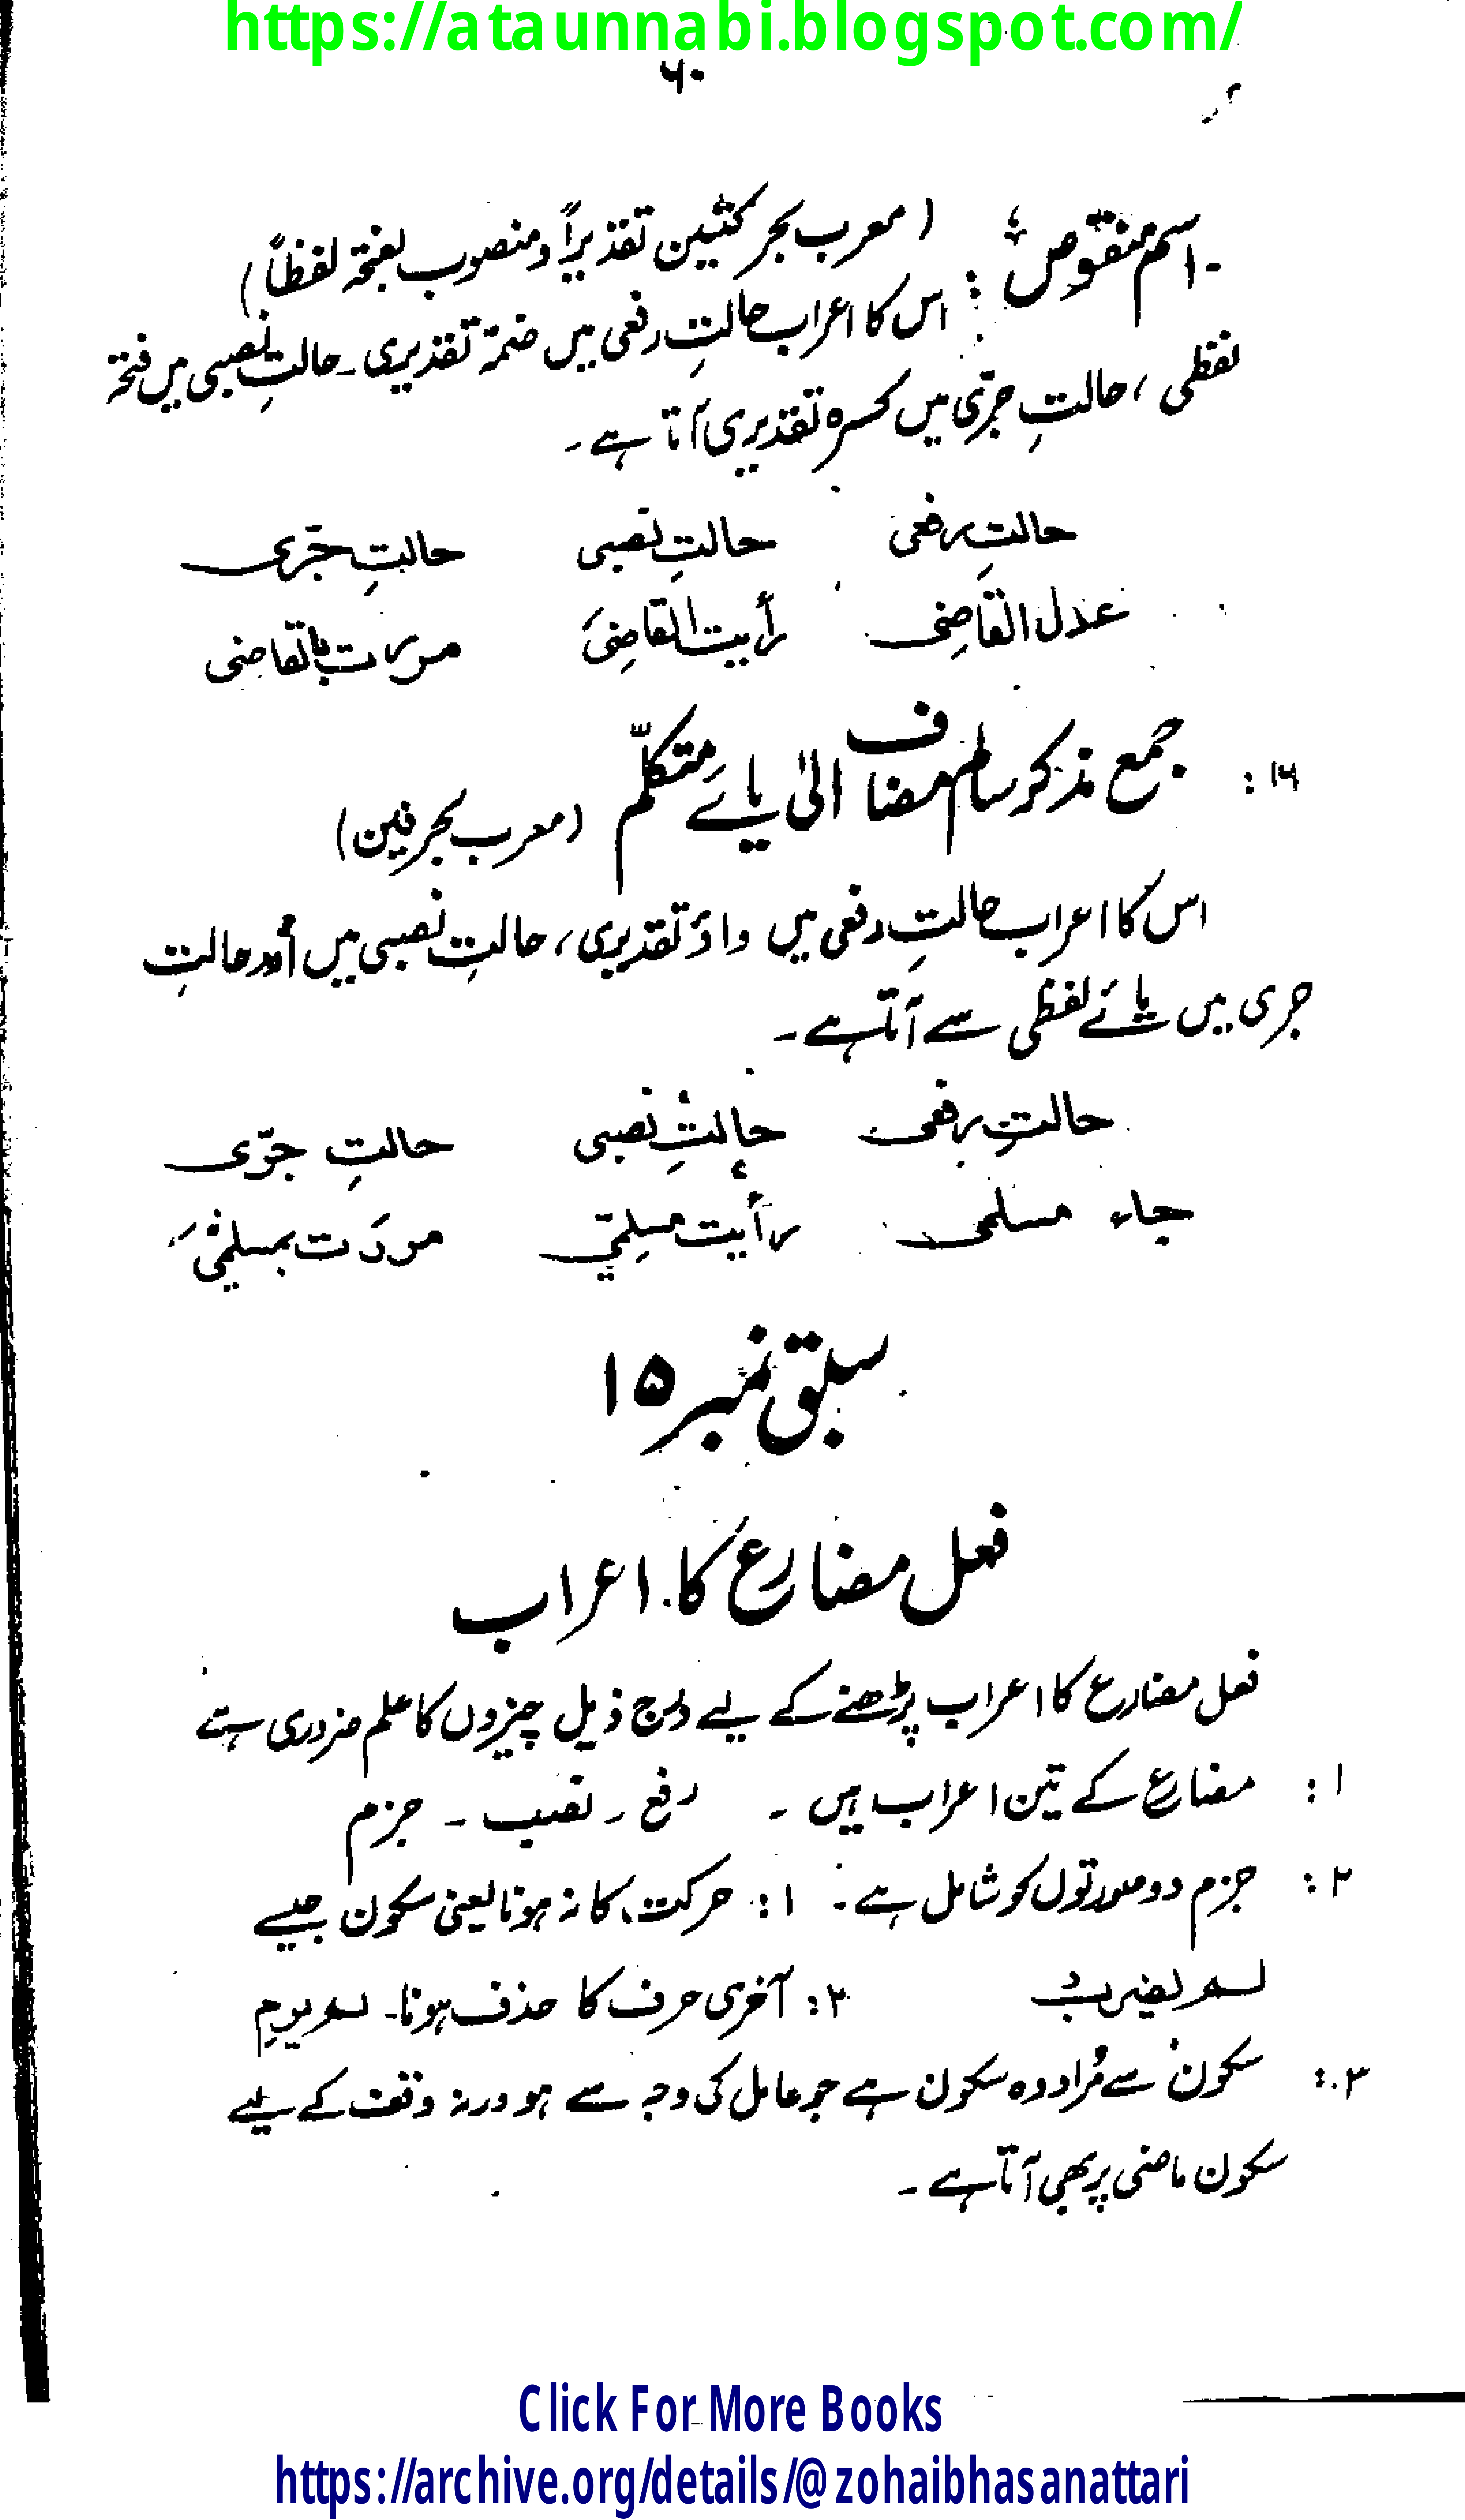 https://ataunnabi.blogspot.com/
۶۰
۔اسم منقوص : (معرب بحرکتین تقدیراً ومنصوب بفتحۃ لفظاً)
اس کا اعراب حالتِ رفعی میں ضمۃ تقدیری۔ حالتِ نصبی میں فتحۃ
لفظی ، حالتِ جرّی میں کسرہ تقدیری آتا ہے۔
حالتِ رفعی حالتِ نصبی حالتِ جرّی
عدل القاضِی رأیت القاضِیَ مررت بالقاضی
۱۶: جمع مذکر سالم مضاف الیٰ یائے متکلّم (معرب بحرفین)
اس کا اعراب حالتِ رفعی میں واؤ تقدیری ، حالتِ نصبی میں اور حالتِ
جری میں یائے لفظی سے آتا ہے۔
حالتِ رفعی حالتِ نصبی حالتِ جرّی
جاء مسلمی رأیت مسلِمیّ مررَت بمسلمیَّ
سبق نمبر ۱۵
فعل مضارع کا اعراب
فعل مضارع کا اعراب پڑھنے کے لیے درج ذیل چیزوں کا علم ضروری ہے
۱: مضارع کے تین اعراب ہیں ۔ رفع ۔ نصب ۔ جزم
۲: جزم دو صورتوں کو شامل ہے۔ ۱: حرکت کا نہ ہونا یعنی سکون جیسے
لم یضرب ۲: آخری حرف کا حذف ہونا۔ لم یرمِ
۳: سکون سے مُراد وہ سکون ہے جو عامل کی وجہ سے ہو ورنہ وقف کے لیے
سکون ماضی پر بھی آتا ہے۔
Click For More Books
https://archive.org/details/@zohaibhasanattari